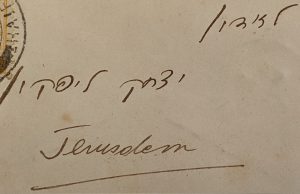 לאדון
יצחק ליפקין
Jerusalem